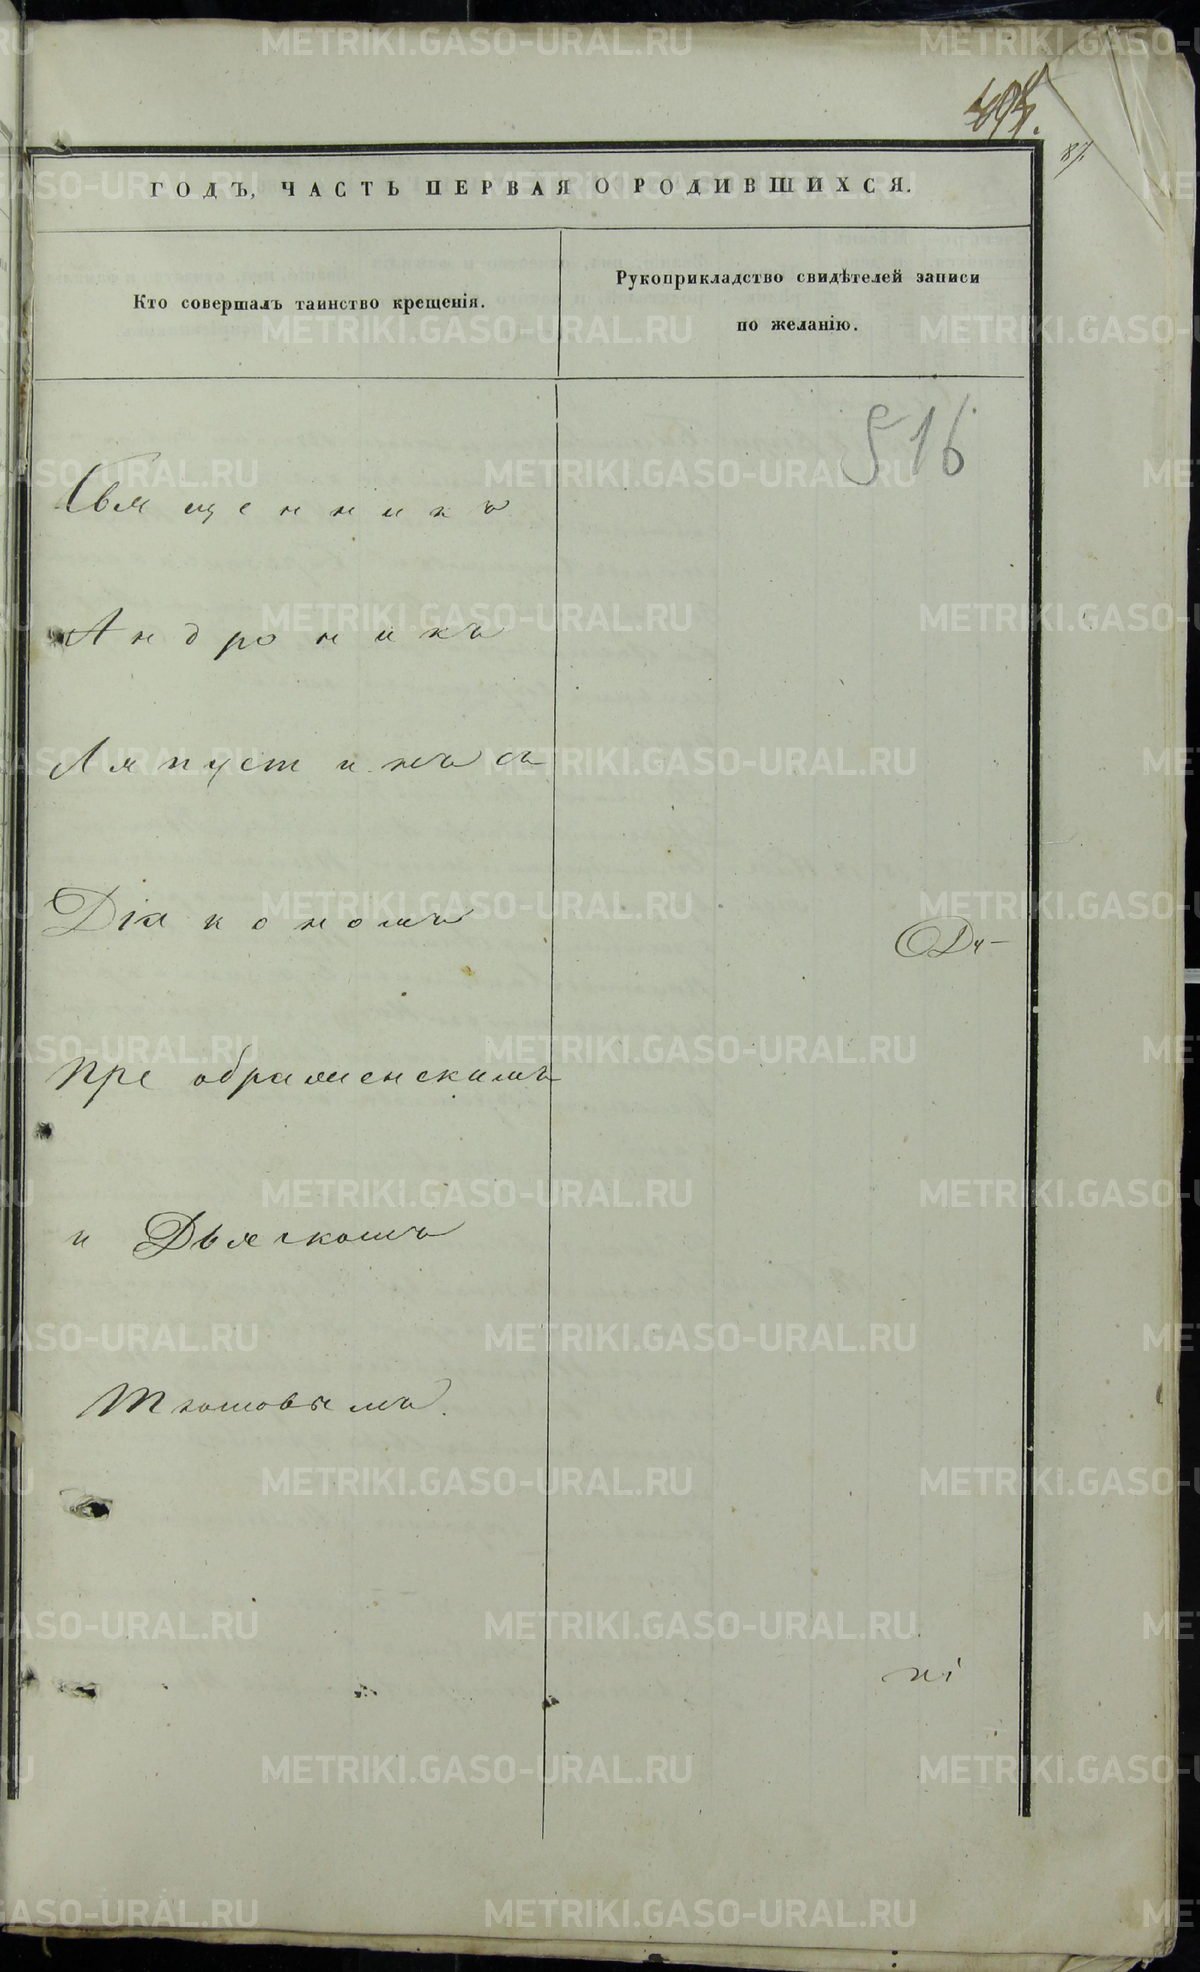 87
ГОДЪ, ЧАСТЬ ПЕРВАЯ О РОДИВШИХСЯ.
Кто совершалъ таинство крещенія.
Рукоприкладство свидѣтелей записи
по желанію.
516
Священникъ
Андроникъ
Ляпустинъ съ
Діакономъ
Преображенскимъ
и Дьячкомъ
Тюшовымъ.
METRIKI.GASO-URAL.RU